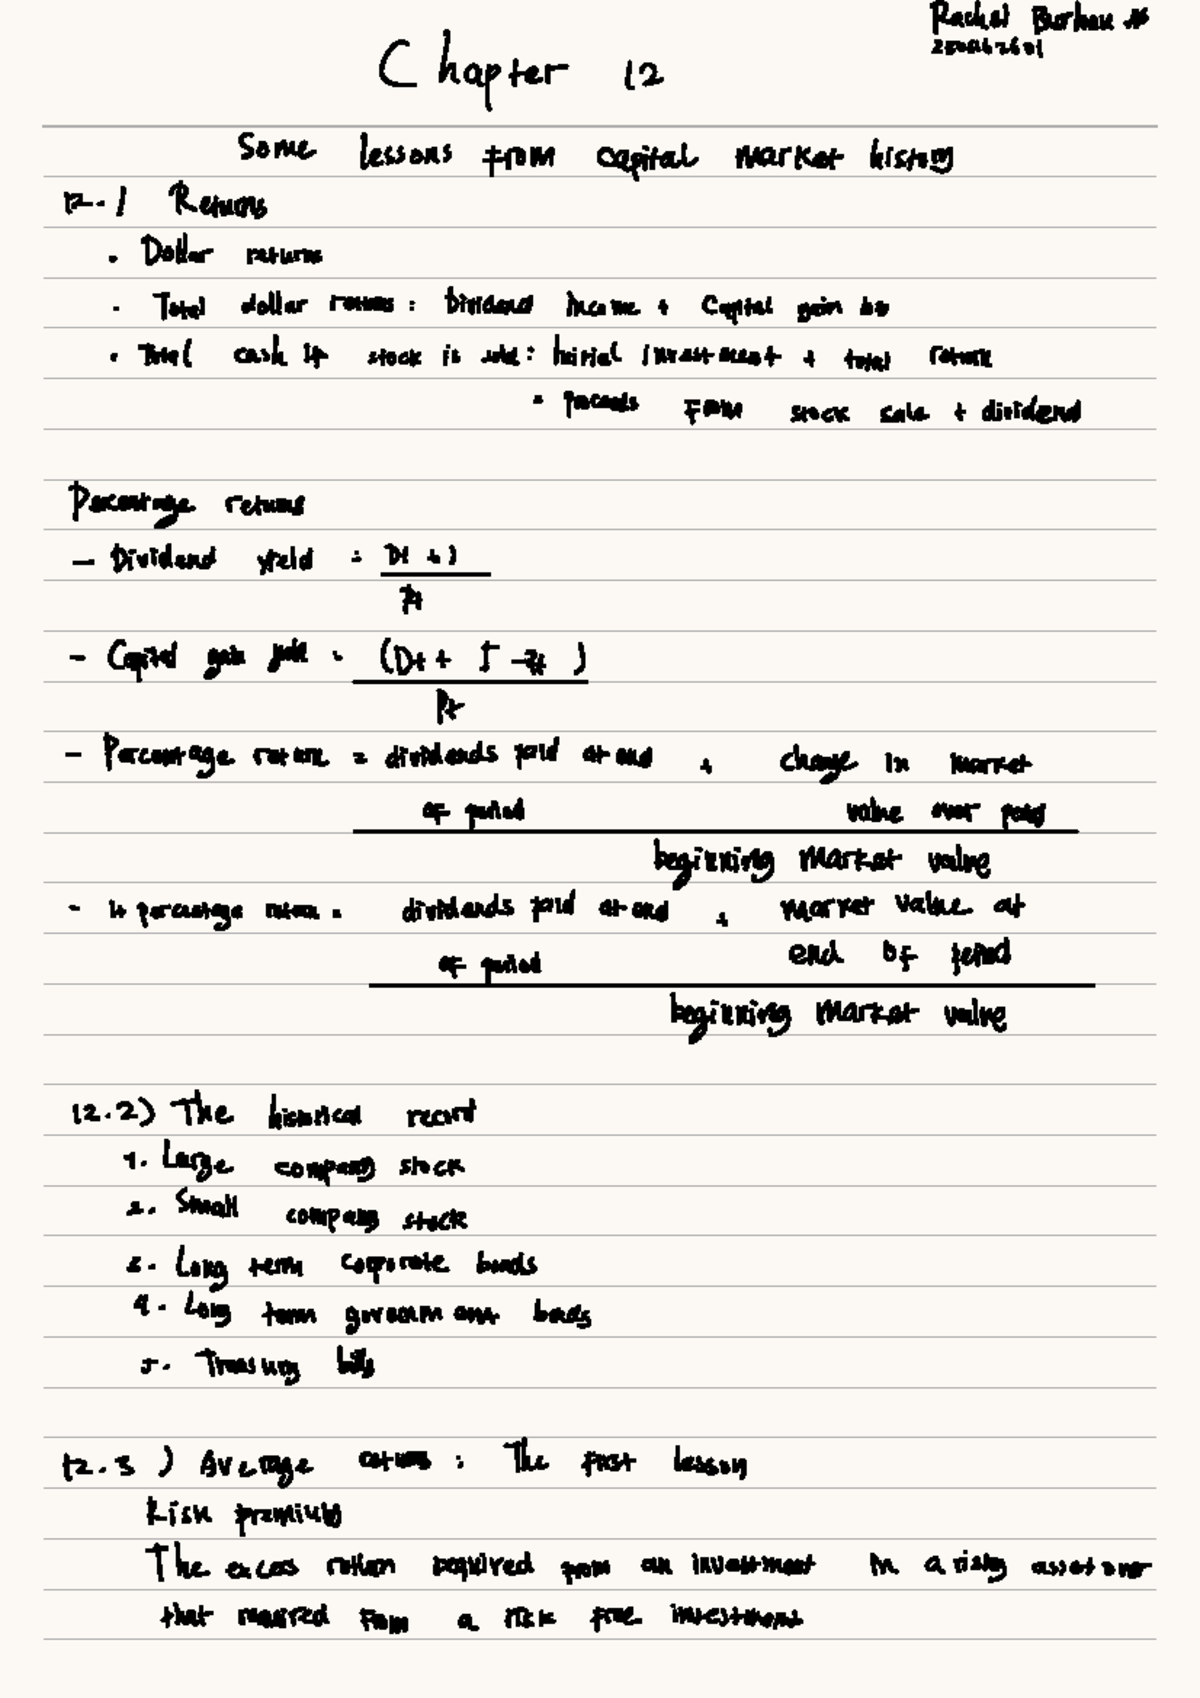 Rachel
Chapter 12
Some lessons from capital market history
12.1 Returns
. Dollar returns
. Total dollar returns : Dividend income + Capital gain
. Total cash if stock is sold : Initial investment + total return
= proceeds From stock sale + dividend
Percentage returns
- Dividend yield = Dt + 1
Pt
- Capital gain yield = (Dt + 1 - Pt )
Pt
- Percentage return = dividends paid at end + change in market
of period value over period
beginning market value
- 1+ percentage return = dividends paid at end + market value at
of period end of period
beginning market value
12.2) The historical record
1. Large company stock
2. Small company stock
3. Long term corporate bonds
4. Long term government bonds
5. Treasury bills
12.3 ) Average returns : The first lesson
Risk premium
The excess return required from an investment in a risky asset over
that required From a risk free investment